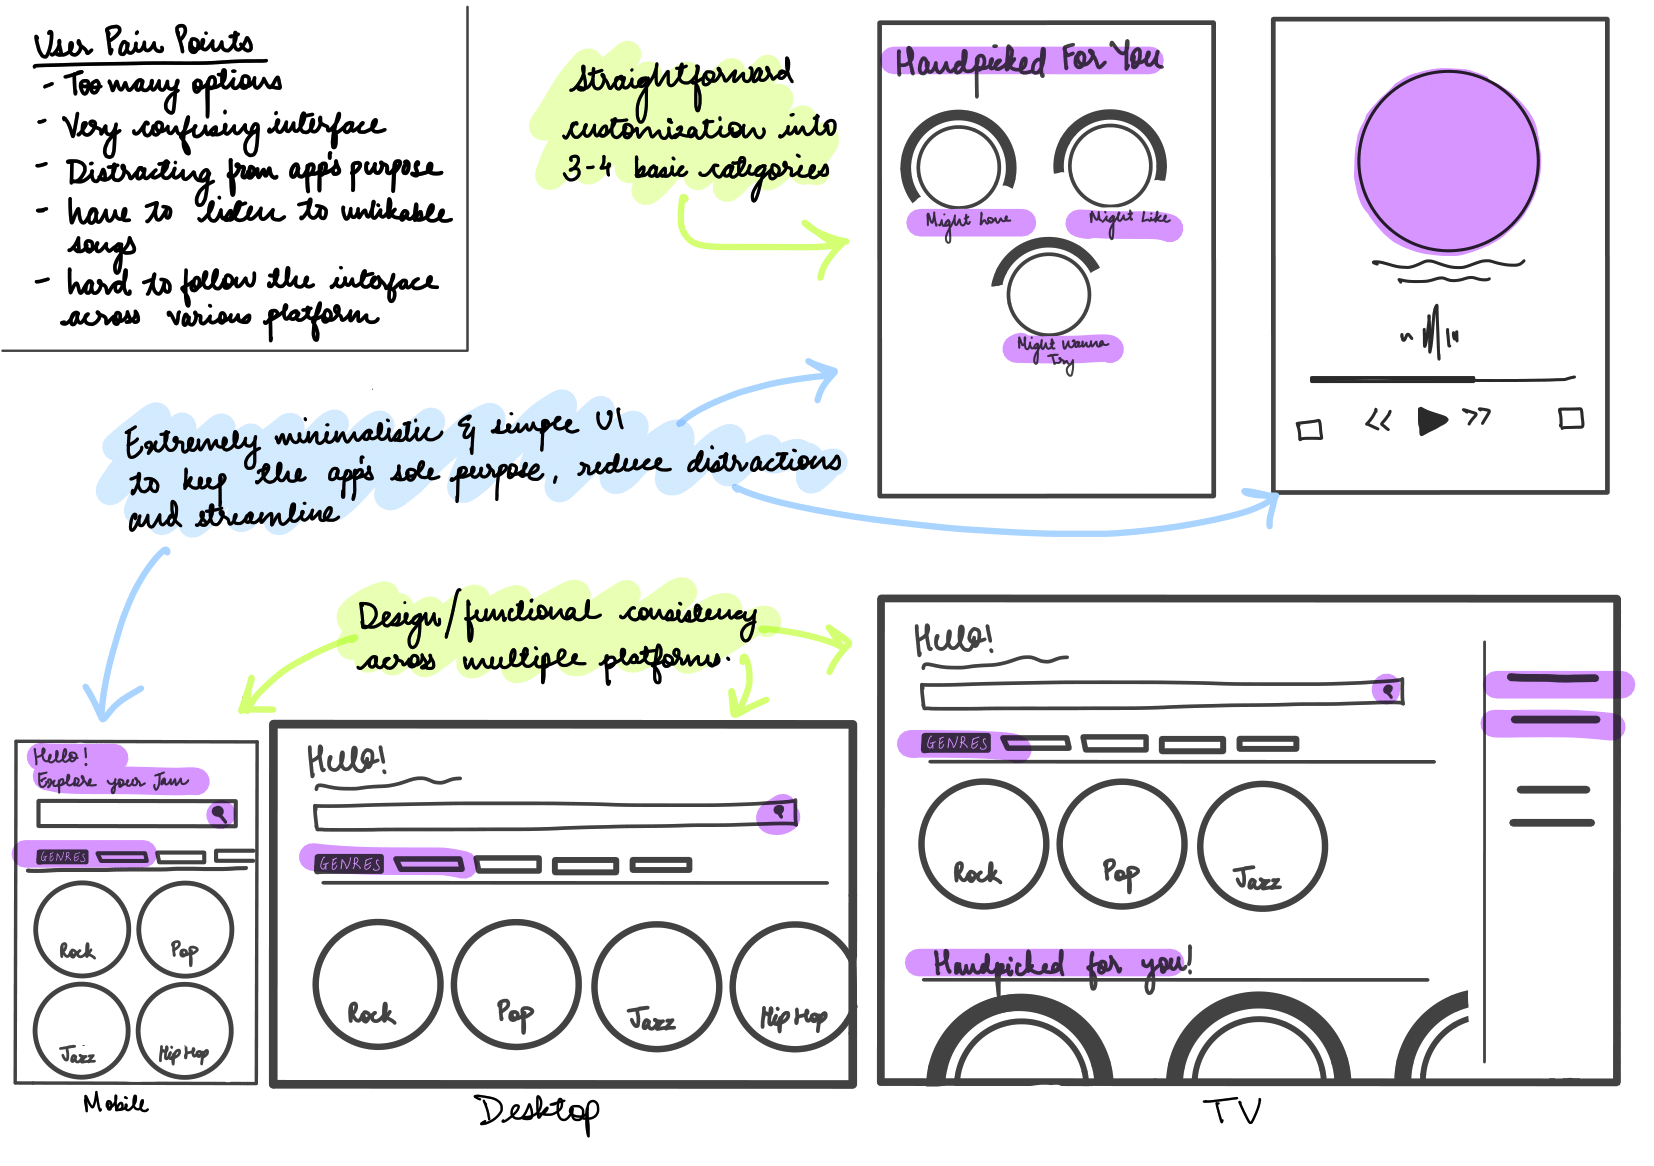 User Pain Points
- Too many options
- Very confusing interface
- Distracting from app's purpose
- have to listen to unlikable
songs
- hard to follow the interface
across various platform
Straightforward
customization into
3-4 basic categories
Handpicked For You
Might Love
Might Like
Might Wanna
Try
Extremely minimalistic & simple UI
to keep the app's sole purpose, reduce distractions
and streamline
Design/functional consistency
across multiple platforms.
Hello!
Explore your Jam
GENRES
Rock
Pop
Jazz
Hip Hop
Mobile
Hello!
GENRES
Rock
Pop
Jazz
Hip Hop
Desktop
Hello!
GENRES
Rock
Pop
Jazz
Handpicked for you!
TV